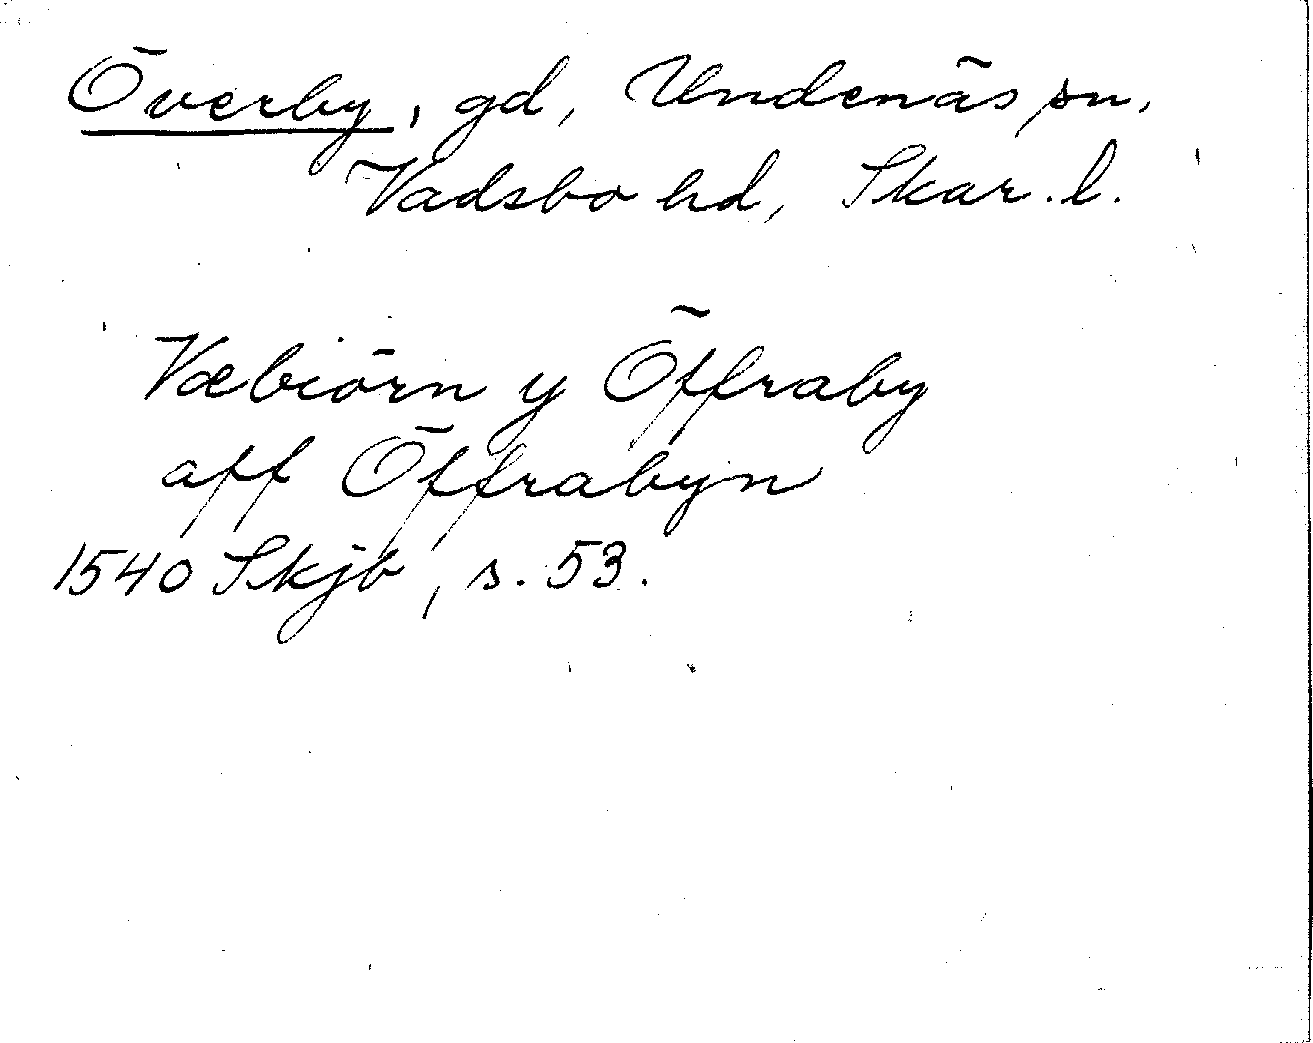 Överby, gd, Undenäs sn,
Vadsbo hd, Skar. l.
Væbiörn y Öffraby
aff Öffrabyn
1540 Skjb, s. 53.